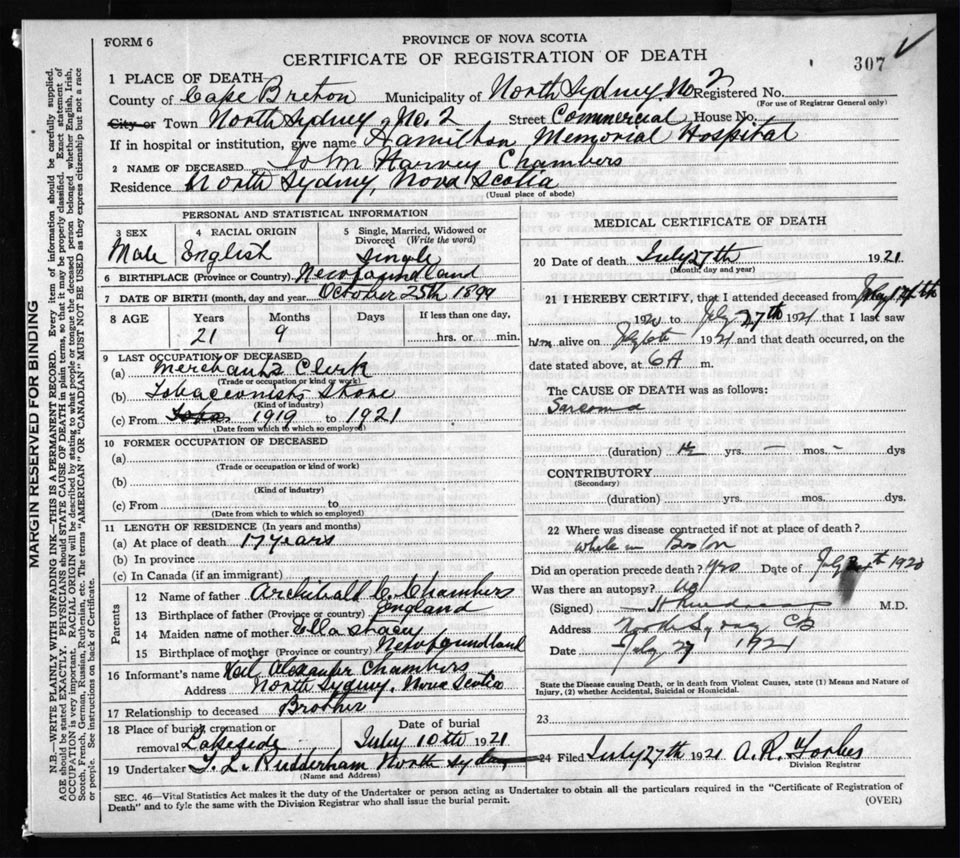 FORM 6
PROVINCE OF NOVA SCOTIA
CERTIFICATE OF REGISTRATION OF DEATH
307
1 PLACE OF DEATH
County of Cape Breton Municipality of North Sydney No 2 Registered No.
(For use of Registrar General only)
City or Town North Sydney, No. 2 Street Commercial House No.
If in hospital or institution, give name Hamilton Memorial Hospital
2 NAME OF DECEASED John Harvey Chambers
Residence North Sydney Nova Scotia
(Usual place of abode)
MARGIN RESERVED FOR BINDING
N.B.—WRITE PLAINLY WITH UNFADING INK—THIS IS A PERMANENT RECORD. Every item of information should be carefully supplied.
AGE should be stated EXACTLY. PHYSICIANS should STATE CAUSE OF DEATH in plain terms, so that it may be properly classified. Exact statement of
OCCUPATION is very important. RACIAL ORIGIN will be described by stating to what people or tongue the deceased person belonged whether English, Irish,
Scotch, French, German, Russian, Ruthenian, etc. The terms "AMERICAN" or "CANADIAN" MUST NOT BE USED as they express citizenship but not a race
or people. See instructions on back of Certificate.
PERSONAL AND STATISTICAL INFORMATION
3 SEX 4 RACIAL ORIGIN 5 Single, Married, Widowed or
Divorced (Write the word)
Male English Single
6 BIRTHPLACE (Province or Country) Newfoundland
7 DATE OF BIRTH (month, day and year October 25th 1899
8 AGE Years Months Days If less than one day,
21 9 hrs. or min.
9 LAST OCCUPATION OF DECEASED
(a) Merchants Clerk
(Trade or occupation or kind of work)
(b) Tobacconists Store
(Kind of industry)
(c) From 1919 to 1921
(Date from which to which so employed)
10 FORMER OCCUPATION OF DECEASED
(a)
(Trade or occupation or kind of work)
(b)
(Kind of industry)
(c) From to
(Date from which to which so employed)
11 LENGTH OF RESIDENCE (In years and months)
(a) At place of death 17 years
(b) In province
(c) In Canada (if an immigrant)
Parents
12 Name of father Archibald C. Chambers
13 Birthplace of father (Province or country) England
14 Maiden name of mother Ella Stacey
15 Birthplace of mother (Province or country) Newfoundland
16 Informant's name Alexander Chambers
Address North Sydney, Nova Scotia
17 Relationship to deceased Brother
18 Place of burial, cremation or Date of burial
removal Lakeside July 10th 1921
19 Undertaker T. L. Rudderham North Sydney
(Name and Address)
MEDICAL CERTIFICATE OF DEATH
20 Date of death July 27th 1921
(Month, day and year)
21 I HEREBY CERTIFY, that I attended deceased from
1920 to July 27th 1921 that I last saw
him alive on 1921 and that death occurred, on the
date stated above, at 6A m.
The CAUSE OF DEATH was as follows:
Sarcoma
(duration) yrs. – mos. – dys
CONTRIBUTORY
(Secondary)
(duration) yrs. mos. dys.
22 Where was disease contracted if not at place of death?
while in Boston
Did an operation precede death? yes Date of July 1920
Was there an autopsy? no
(Signed) M.D.
Address North Sydney CB
Date July 27 1921
State the Disease Causing Death, or in death from Violent Causes, state (1) Means and Nature of
Injury, (2) whether Accidental, Suicidal or Homicidal.
23
24 Filed July 27th 1921 A. R. Forbes
Division Registrar
SEC. 46—Vital Statistics Act makes it the duty of the Undertaker or person acting as Undertaker to obtain all the particulars required in the "Certificate of Registration of
Death" and to fyle the same with the Division Registrar who shall issue the burial permit.
(OVER)